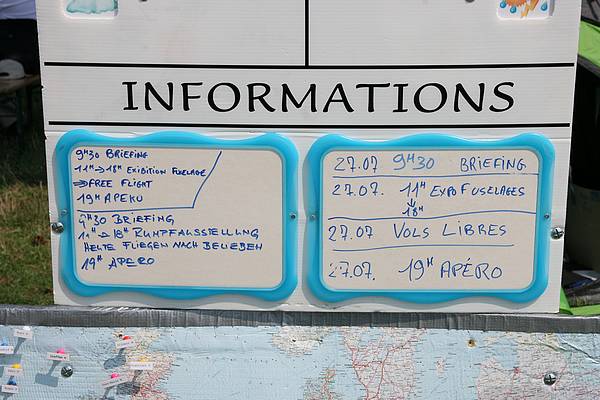 INFORMATIONS
9H30 BRIEFING
11H→18H EXIBITION FUSELAGE
⇒FREE FLIGHT
19H APERO
9H30 BRIEFING
11H→18H RUMPFAUSSTELLUNG
HEUTE FLIEGEN NACH BELIEBEN
19H APERO
27.07 9H30 BRIEFING
27.07. 11H EXPO FUSELAGES
↓
18H
27.07 VOLS LIBRES
27.07. 19H APÉRO